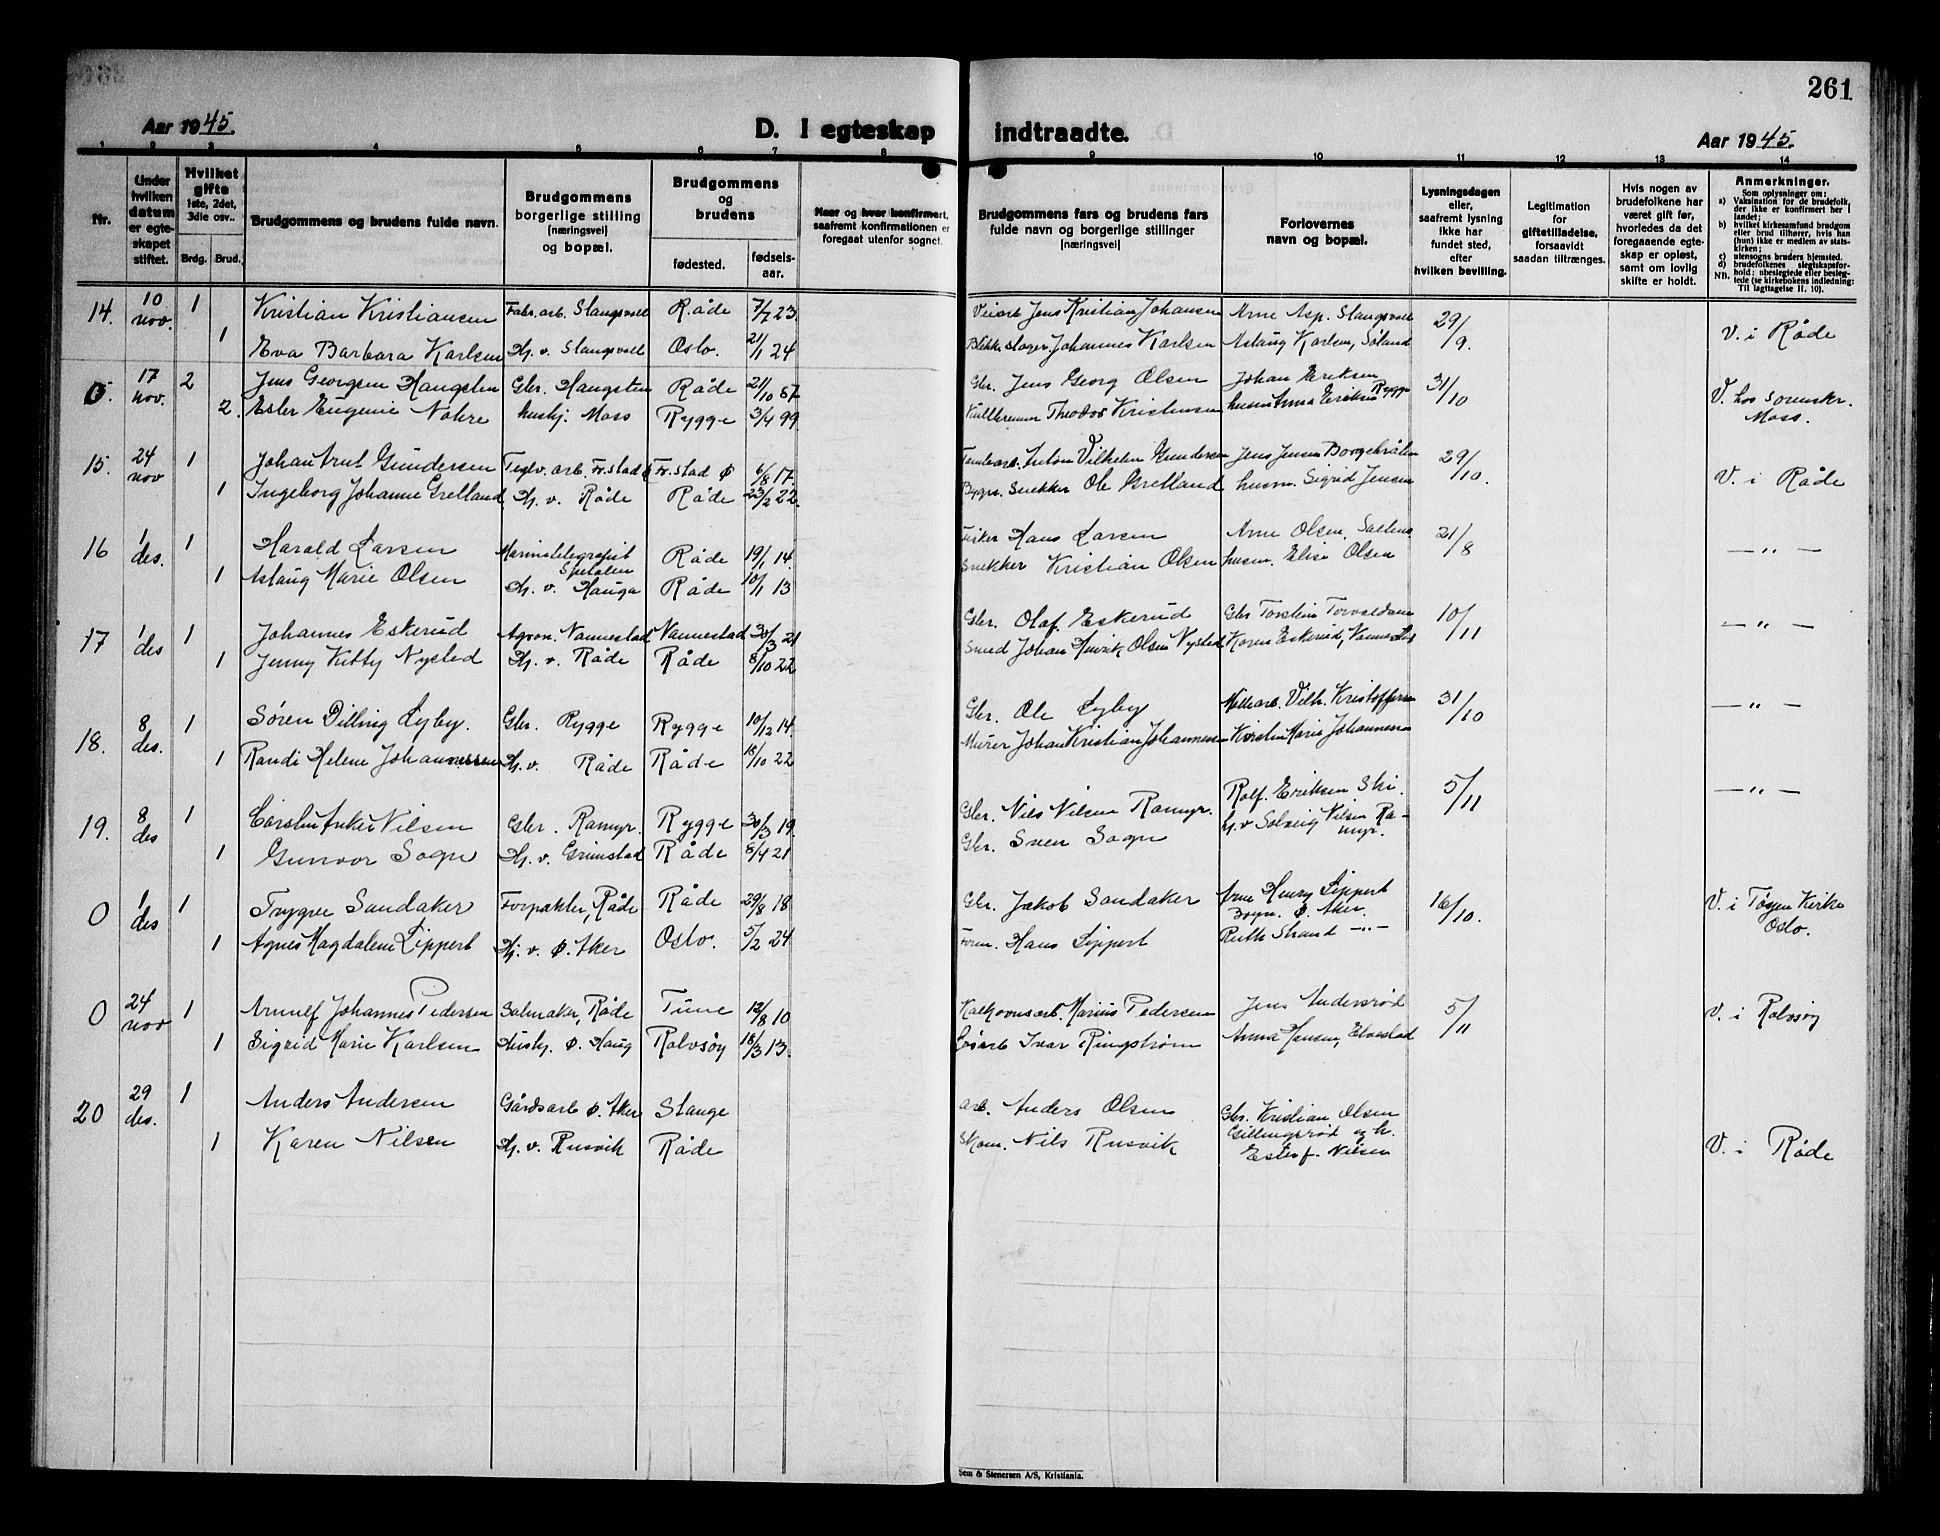 261
Aar 1945.
D. I egteskap
indtraadte.
Aar 1945.
1 2 3 4 5 6 7 8 9 10 11 12 13 14
Nr.
Under hvilken datum er egteskapet stiftet.
Hvilket gifte 1ste, 2det, 3die osv..
Brdg. Brud.
Brudgommens og brudens fulde navn.
Brudgommens borgerlige stilling [næringsvei] og bopæl.
Brudgommens og brudens
fødested.
fødsels-aar.
Naar og hvor konfirmert, saafremt konfirmationen er foregaat utenfor sognet.
Brudgommens fars og brudens fars fulde navn og borgerlige stillinger [næringsvei]
Forlovernes navn og bopæl.
Lysningsdagen eller, saafremt lysning ikke har fundet sted, efter hvilken bevilling.
Legitimation for giftetilladelse, forsaavidt saadan tiltrænges.
Hvis nogen av brudefolkene har været gift før, hvorledes da det foregaaende egteskap er opløst, samt om lovlig skifte er holdt.
Anmerkninger.
Som oplysninger om:
a) Vaksination for de brudefolk, der ikke er konfirmert her i landet;
b) hvilket kirkesamfund brudgom eller brud tilhører, hvis han (hun) ikke er medlem av statskirken;
c) utensogns bruders hjemsted.
d) brudefolkenes slegtskapsforhold: ubeslegtede eller beslegtede (se kirkebokens indledning: Til Iagttagelse II. 10).
NB.
14. 10 nov. 1 Kristian Kristiansen Fabr. arb. Slangsvoll Råde 7/7 23 Veiarb Jens Kristian Johansen Arne Asp. Slangsvoll 29/9 V. i Råde
1 Eva Barbara Karlsen Hj. v. Slangsvoll Oslo. 21/1 24 Blikk. Slager. Johannes Karlsen Aslaug Karlsen, Søland
0 17 nov. 2 Jens Georgsen Haugsten Gbr. Haugsten Råde 21/10 87 Gbr. Jens Georg Olsen Johan Eriksen 31/10 V. hos Sorenskr. Moss.
2. Ester Eugenie Nohre hushj. Moss Rygge 3/4 99 Theodor Kristensen husm Anna Eriksen Rygge
15. 24 nov 1 Johan Arnt Gundersen Teglv. arb. Fr.stad Fr.stad Ø 6/8 17. Anton Vilhelm Gundersen Jens Jensen 29/10. V. i Råde
1 Ingeborg Johanne Grelland Hj. v. Råde Råde 23/2 22. Bygn. Snekker Ole Grelland husm. Sigrid Jensen
16 1 des. 1 Harald Larsen Marinetelegrafist Spetalen Råde 19/1 14. Fisker Hans Larsen Arne Olsen, Saltnes 21/8 — „ —
1 Aslaug Marie Olsen Hj. v. Hauga Råde 10/1 13 Snekker Kristian Olsen husm. Elise Olsen
17 1 des 1 Johannes Eskerud Agron. Nannestad Nannestad 30/3 21 Gbr. Olaf Eskerud Gbr Torstein Torvaldsen 10/11 — „ —
1 Jenny Kitty Nysted Hj. v. Råde Råde 8/10 22 Smed Johan Henrik Olsen Nysted Karen Eskerud, Nannestad
18. 8 des. 1 Søren Dilling Lyby. Gbr. Rygge Rygge 10/12 14. Gbr. Ole Lyby Vilh. Kristoffersen 31/10 — „ —
1 Randi Helene Johannessen Hj. v. Råde Råde 18/10 22 Murer Johan Kristian Johannessen Kirsten Marie Johannessen
19. 8 des 1 Nilsen Gbr. Ramyr. Rygge 30/3 19. Gbr. Nils Nilsen Ramyr. Rolf. Eriksen Ski. 5/11 — „ —
1 Gunvor Sogn Hj. v. Grimstad Råde 8/4 21 Gbr. Sven Sogn h. v Solveig Nilsen Ra-myr.
0 1 des 1 Trygve Sandaker Forpakter, Råde Råde 29/8 18 Gbr. Jakob Sandaker Arne Henry Lippert Bogn. Ø. Aker. 16/10. V. i Tøyen Kirke Oslo.
1 Agnes Magdalene Lippert Hj. v. Ø. Aker Oslo. 5/2 24 Form. Hans Lippert Ruth Strand —„—
0 24 nov 1 Arnulf Johannes Pedersen Salmaker, Råde Tune 12/8 10 Kalkovnsarb. Marius Pedersen Jens Andersrød 5/11 V. i Rolvsøy
1 Sigrid Marie Karlsen Hushj. Ø. Haug Rolvsøy 18/3 13. Ivar Ringstrøm Anna Jensen, Elvestad
20 29 des. 1 Anders Andersen Gårdsarb Ø. Aker Stange arb. Anders Olsen Gbr. Kristian Olsen Gillingsrød og h.
1 Karen Nilsen Hj. v. Rusvik Råde Skom. Nils Rusvik Ester f. Nilsen V. i Råde
Sem & Stenersen A/S, Kristiania.